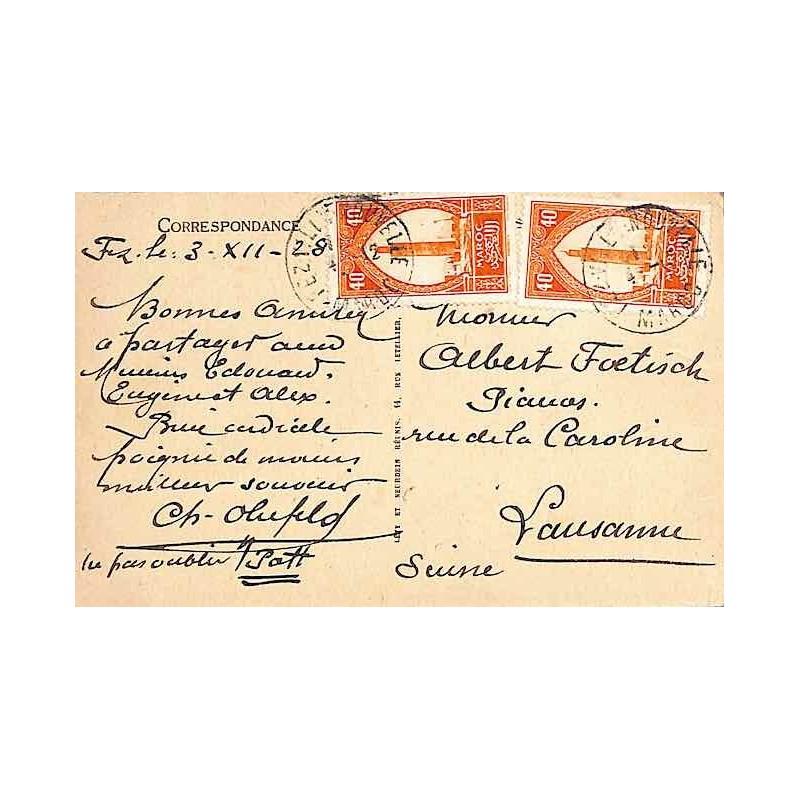 CORRESPONDANCE
Fez le: 3-XII-28
Bonnes Amitiés
à partager avec
Edouard.
Eugène et Alex.
Bien cordiale
poignée de mains
meilleur souvenir
Ch-
ne pas oublier Patt
40 40 MAROC المغرب
40 40 MAROC المغرب
LÉVY ET NEURDEIN RÉUNIS, 44, RUE LETELLIER,
Monsieur
Albert Foetisch
Pianos.
rue de la Caroline
Lausanne
Suisse